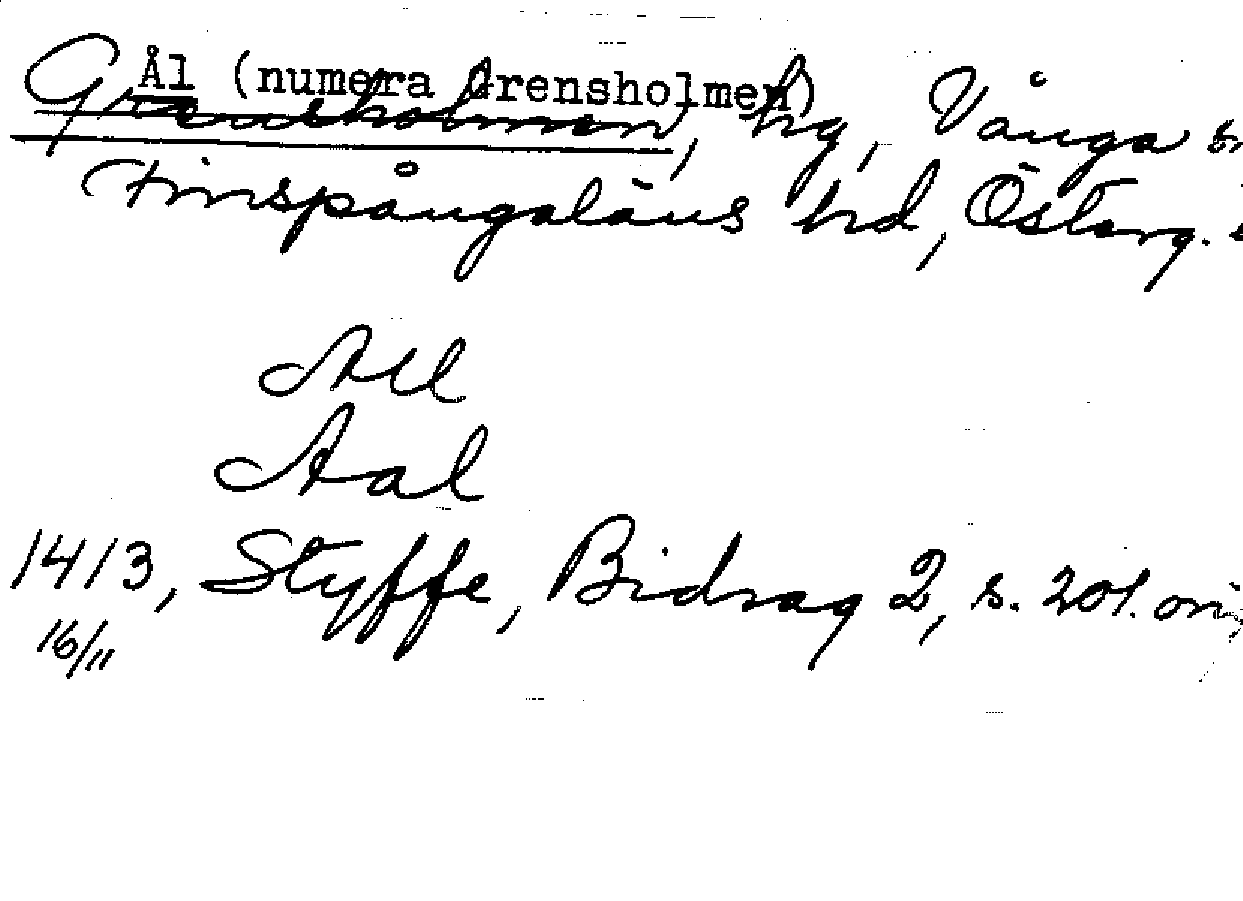 Ål (numera Grensholmen)
Grensholmen, hg, Vånga sn
Finspångaläns hd, Österg. 
All
Aal
1413, Styffe, Bidrag 2, s. 201. orig
16/11